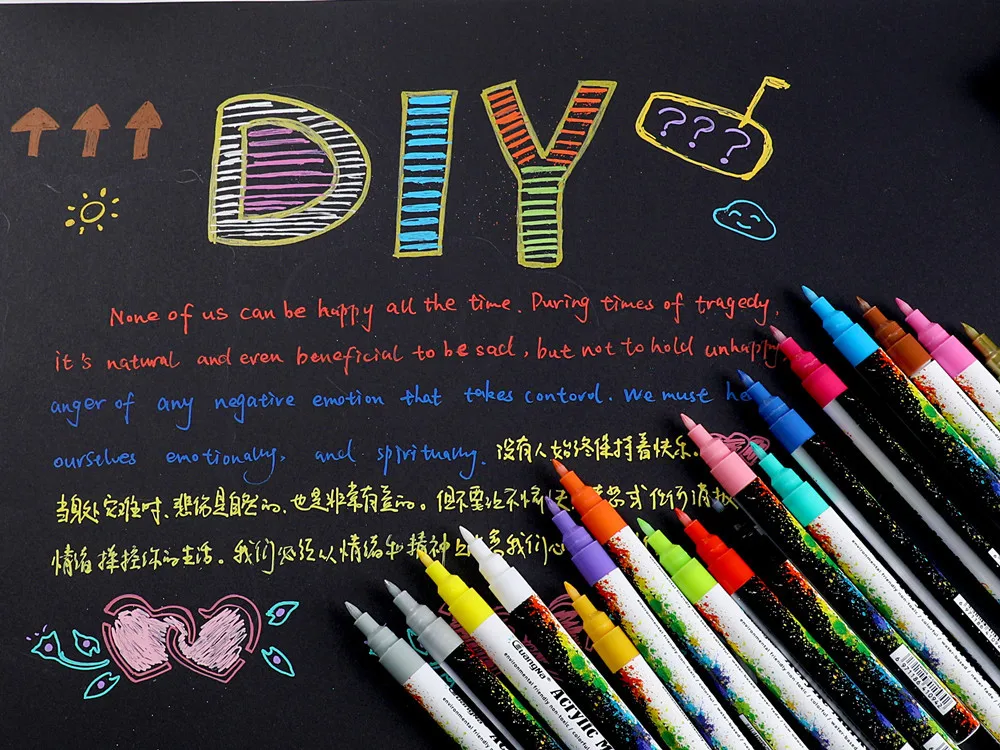 DIY
? ? ?
None of us can be happy all the time. During times of tragedy,
it's natural and even beneficial to be sad, but not to hold unhappy
anger of any negative emotion that takes contord. We must he
ourselves emotionally, and spiritually. 没有人始终保持着快乐。
当身处灾难时、悲伤是自然的、也是非常有益的。但不要让不愉 任何消极
情绪操控你的生活。我们必须从情绪和精神上 我们
GuangNa
environmental friendly non-toxic / colorful
Acrylic M